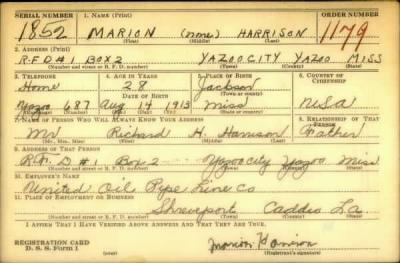 SERIAL NUMBER 1. NAME (Print) ORDER NUMBER
1852 MARION (none) HARRISON 1179
(First) (Middle) (Last)
2. ADDRESS (Print)
R.F.D #1 BOX 2 YAZOO CITY YAZOO MISS
(Number and street or R. F. D. number) (Town) (County) (State)
3. TELEPHONE 4. AGE IN YEARS 5. PLACE OF BIRTH 6. COUNTRY OF CITIZENSHIP
Home 28 Jackson
DATE OF BIRTH (Town or county)
687 Aug 14 1913 Miss USA
(Exchange) (Number) (Mo.) (Day) (Yr.) (State or country)
7. NAME OF PERSON WHO WILL ALWAYS KNOW YOUR ADDRESS 8. RELATIONSHIP OF THAT PERSON
Mr Richard H. Harrison Father
(Mr., Mrs., Miss) (First) (Middle) (Last)
9. ADDRESS OF THAT PERSON
R.F. D #1 Box 2 Yazoo City Yazoo Miss
(Number and street or R. F. D. number) (Town) (County) (State)
10. EMPLOYER'S NAME
United Oil Pipe Line Co
11. PLACE OF EMPLOYMENT OR BUSINESS
Shreveport Caddo La
(Number and street or R. F. D. number) (Town) (County) (State)
I AFFIRM THAT I HAVE VERIFIED ABOVE ANSWERS AND THAT THEY ARE TRUE.
REGISTRATION CARD
D. S. S. Form 1 Marion Harrison
(Registrant's signature)